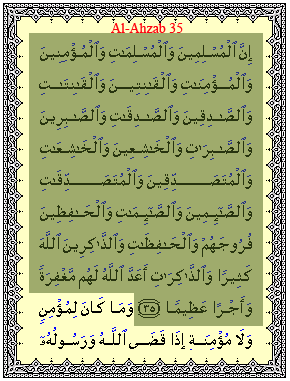 Al-Ahzab 35
إِنَّ ٱلْمُسْلِمِينَ وَٱلْمُسْلِمَٰتِ وَٱلْمُؤْمِنِينَ
وَٱلْمُؤْمِنَٰتِ وَٱلْقَٰنِتِينَ وَٱلْقَٰنِتَٰتِ
وَٱلصَّٰدِقِينَ وَٱلصَّٰدِقَٰتِ وَٱلصَّٰبِرِينَ
وَٱلصَّٰبِرَٰتِ وَٱلْخَٰشِعِينَ وَٱلْخَٰشِعَٰتِ
وَٱلْمُتَصَدِّقِينَ وَٱلْمُتَصَدِّقَٰتِ
وَٱلصَّٰٓئِمِينَ وَٱلصَّٰٓئِمَٰتِ وَٱلْحَٰفِظِينَ
فُرُوجَهُمْ وَٱلْحَٰفِظَٰتِ وَٱلذَّٰكِرِينَ ٱللَّهَ
كَثِيرًا وَٱلذَّٰكِرَٰتِ أَعَدَّ ٱللَّهُ لَهُم مَّغْفِرَةً
وَأَجْرًا عَظِيمًا ٣٥ وَمَا كَانَ لِمُؤْمِنٍ
وَلَا مُؤْمِنَةٍ إِذَا قَضَى ٱللَّهُ وَرَسُولُهُۥٓ